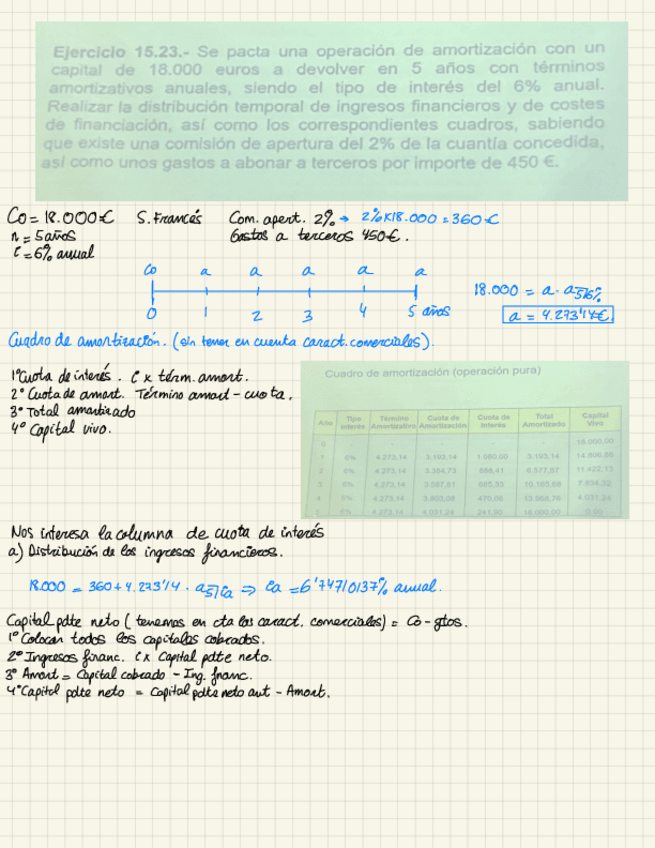 Ejercicio 15.23.- Se pacta una operación de amortización con un
capital de 18.000 euros a devolver en 5 años con términos
amortizativos anuales, siendo el tipo de interés del 6% anual.
Realizar la distribución temporal de ingresos financieros y de costes
de financiación, así como los correspondientes cuadros, sabiendo
que existe una comisión de apertura del 2% de la cuantía concedida,
así como unos gastos a abonar a terceros por importe de 450 €.
Co = 18.000€ S. Francés Com. apert. 2% → 2% x 18.000 = 360 €
n = 5 años Gastos a terceros 450€.
i = 6% anual
Co a a a a a
0 1 2 3 4 5 años
18.000 = a · a5|6%
a = 4.273'14€
Cuadro de amortización. (sin tener en cuenta caract. comerciales).
1º Cuota de interés. i x térm. amort.
2º Cuota de amort. Término amort - cuota.
3º Total amortizado
4º Capital vivo.
Cuadro de amortización (operación pura)
Año Tipo interés Término Amortizativo Cuota de Amortización Cuota de Interés Total Amortizado Capital Vivo
0 - - - - - 18.000,00
1 6% 4.273,14 3.193,14 1.080,00 3.193,14 14.806,86
2 6% 4.273,14 3.384,73 888,41 6.577,87 11.422,13
3 6% 4.273,14 3.587,81 685,33 10.165,68 7.834,32
4 6% 4.273,14 3.803,08 470,06 13.968,76 4.031,24
5 6% 4.273,14 4.031,24 241,90 18.000,00 0,00
Nos interesa la columna de cuota de interés
a) Distribución de los ingresos financieros.
18.000 = 360 + 4.273'14 · a5|ia ⇒ ia = 6'74710137% anual.
Capital pdte neto (tenemos en cta las caract. comerciales) = Co - gtos.
1º Colocar todos los capitales cobrados.
2º Ingresos financ. i x Capital pdte neto.
3º Amort = Capital cobrado - Ing. financ.
4º Capital pdte neto = Capital pdte neto ant - Amort.